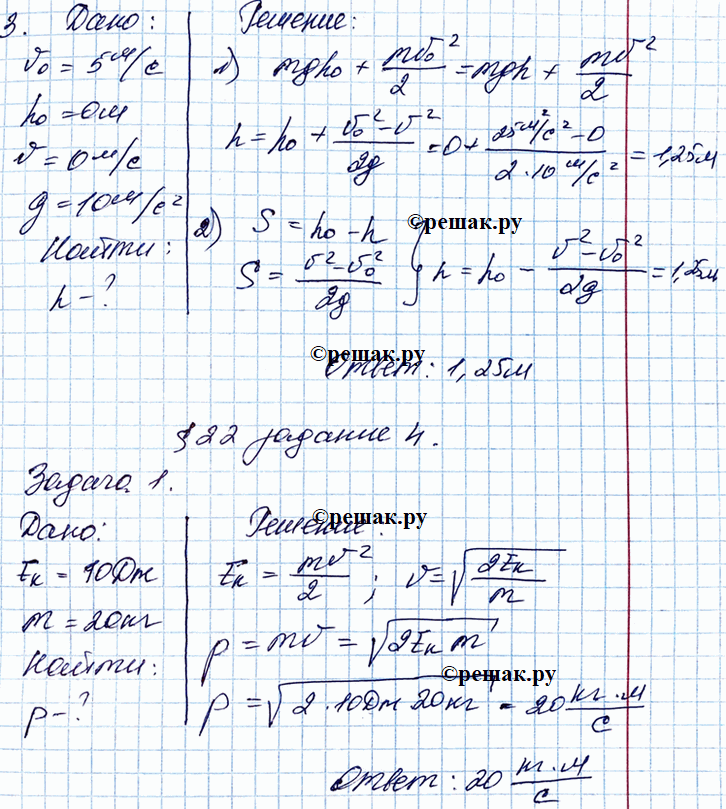 3. Дано:
v₀ = 5 м/с
h₀ = 0м
v = 0 м/с
g = 10 м/с²
Найти:
h - ?
Решение:
1) mgh₀ + mv₀²/2 = mgh + mv²/2
h = h₀ + (v₀² - v²)/2g = 0 + (25 м²/с² - 0)/(2·10 м/с²) = 1,25м
2) S = h₀ - h
S = (v² - v₀²)/2g } h = h₀ - (v² - v₀²)/2g = 1,25м
©решак.ру
Ответ: 1,25м
©решак.ру
§22 задание 4.
Задача 1.
Дано:
Eк = 10Дж
m = 20кг
Найти:
p - ?
Решение:
©решак.ру
Eк = mv²/2; v = √(2Eк/m)
p = mv = √(2Eк m)
©решак.ру
p = √(2·10Дж 20кг) = 20 кг·м/с
Ответ: 20 кг·м/с